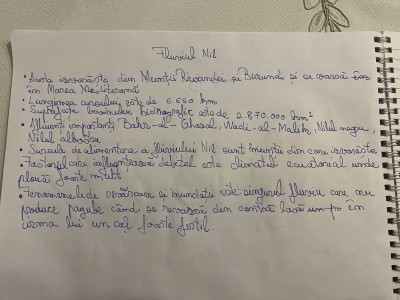 Fluviul Nil
• Acesta izvorăște din Munții Rwandei și Burundi și se varsă
în Marea Mediterană
• Lungimea cursului este de 6 650 km
• Suprafața bazinului hidrografic este de 2.870.000 km²
• Afluenți importanți Bahr-al-Ghazal, Wadi-al-Malik, Nilul negru,
Nilul albastru
• Sursele de alimentare a fluviului Nil sunt munții din care izvorăște
• Factorul care influențează debitul este climatul ecuatorial unde
plouă foarte mult
• Fenomenele de revărsare și inundații este singurul fluviu care nu
produce pagube când se revarsă din contră lasă în
urma lui un sol foarte fertil.